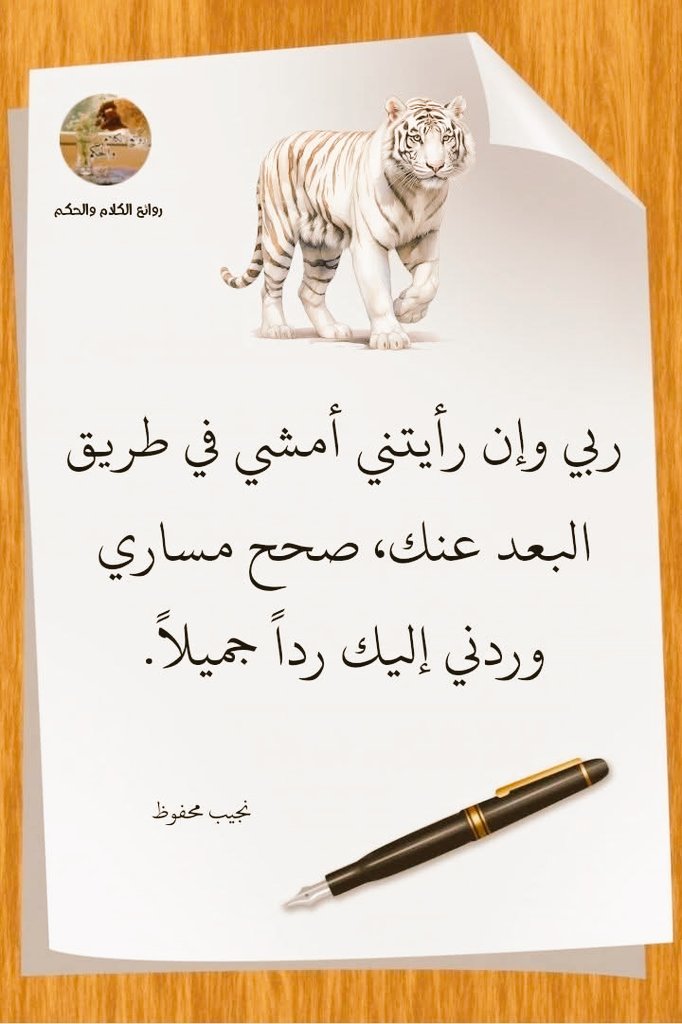 روائع الكلام والحكم
ربي وإن رأيتني أمشي في طريق
البعد عنك، صحح مساري
وردني إليك رداً جميلاً.
نجيب محفوظ